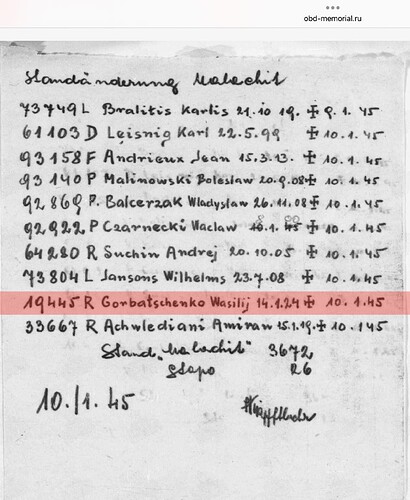 obd-memorial.ru
Standänderung Malachit
73749 L Bralitis Karlis 21.10 19. ✠ 9.1.45
61103 D Leisnig Karl 22.5.99 ✠ 10.1.45
93158 F Andrieux Jean 15.3.13. ✠ 10.1.45
93140 P Malinowski Boleslaw 20.9.08 ✠ 10.1.45
92869 P. Balcerzak Wladyslaw 26.11.08 ✠ 10.1.45
92922 P Czarnecki Waclaw ✠ 10.1.45
64280 R Suchin Andrej 20.10.05 ✠ 10.1.45
73804 L Jansons Wilhelms 23.7.08 ✠ 10.1.45
19445 R Gorbatschenko Wasilij 14.1.24 ✠ 10.1.45
33667 R Achwlediani Amiran 15.1.19. ✠ 10.1 45
Stand „Malachit" 3672
Stapo 26
10./1. 45